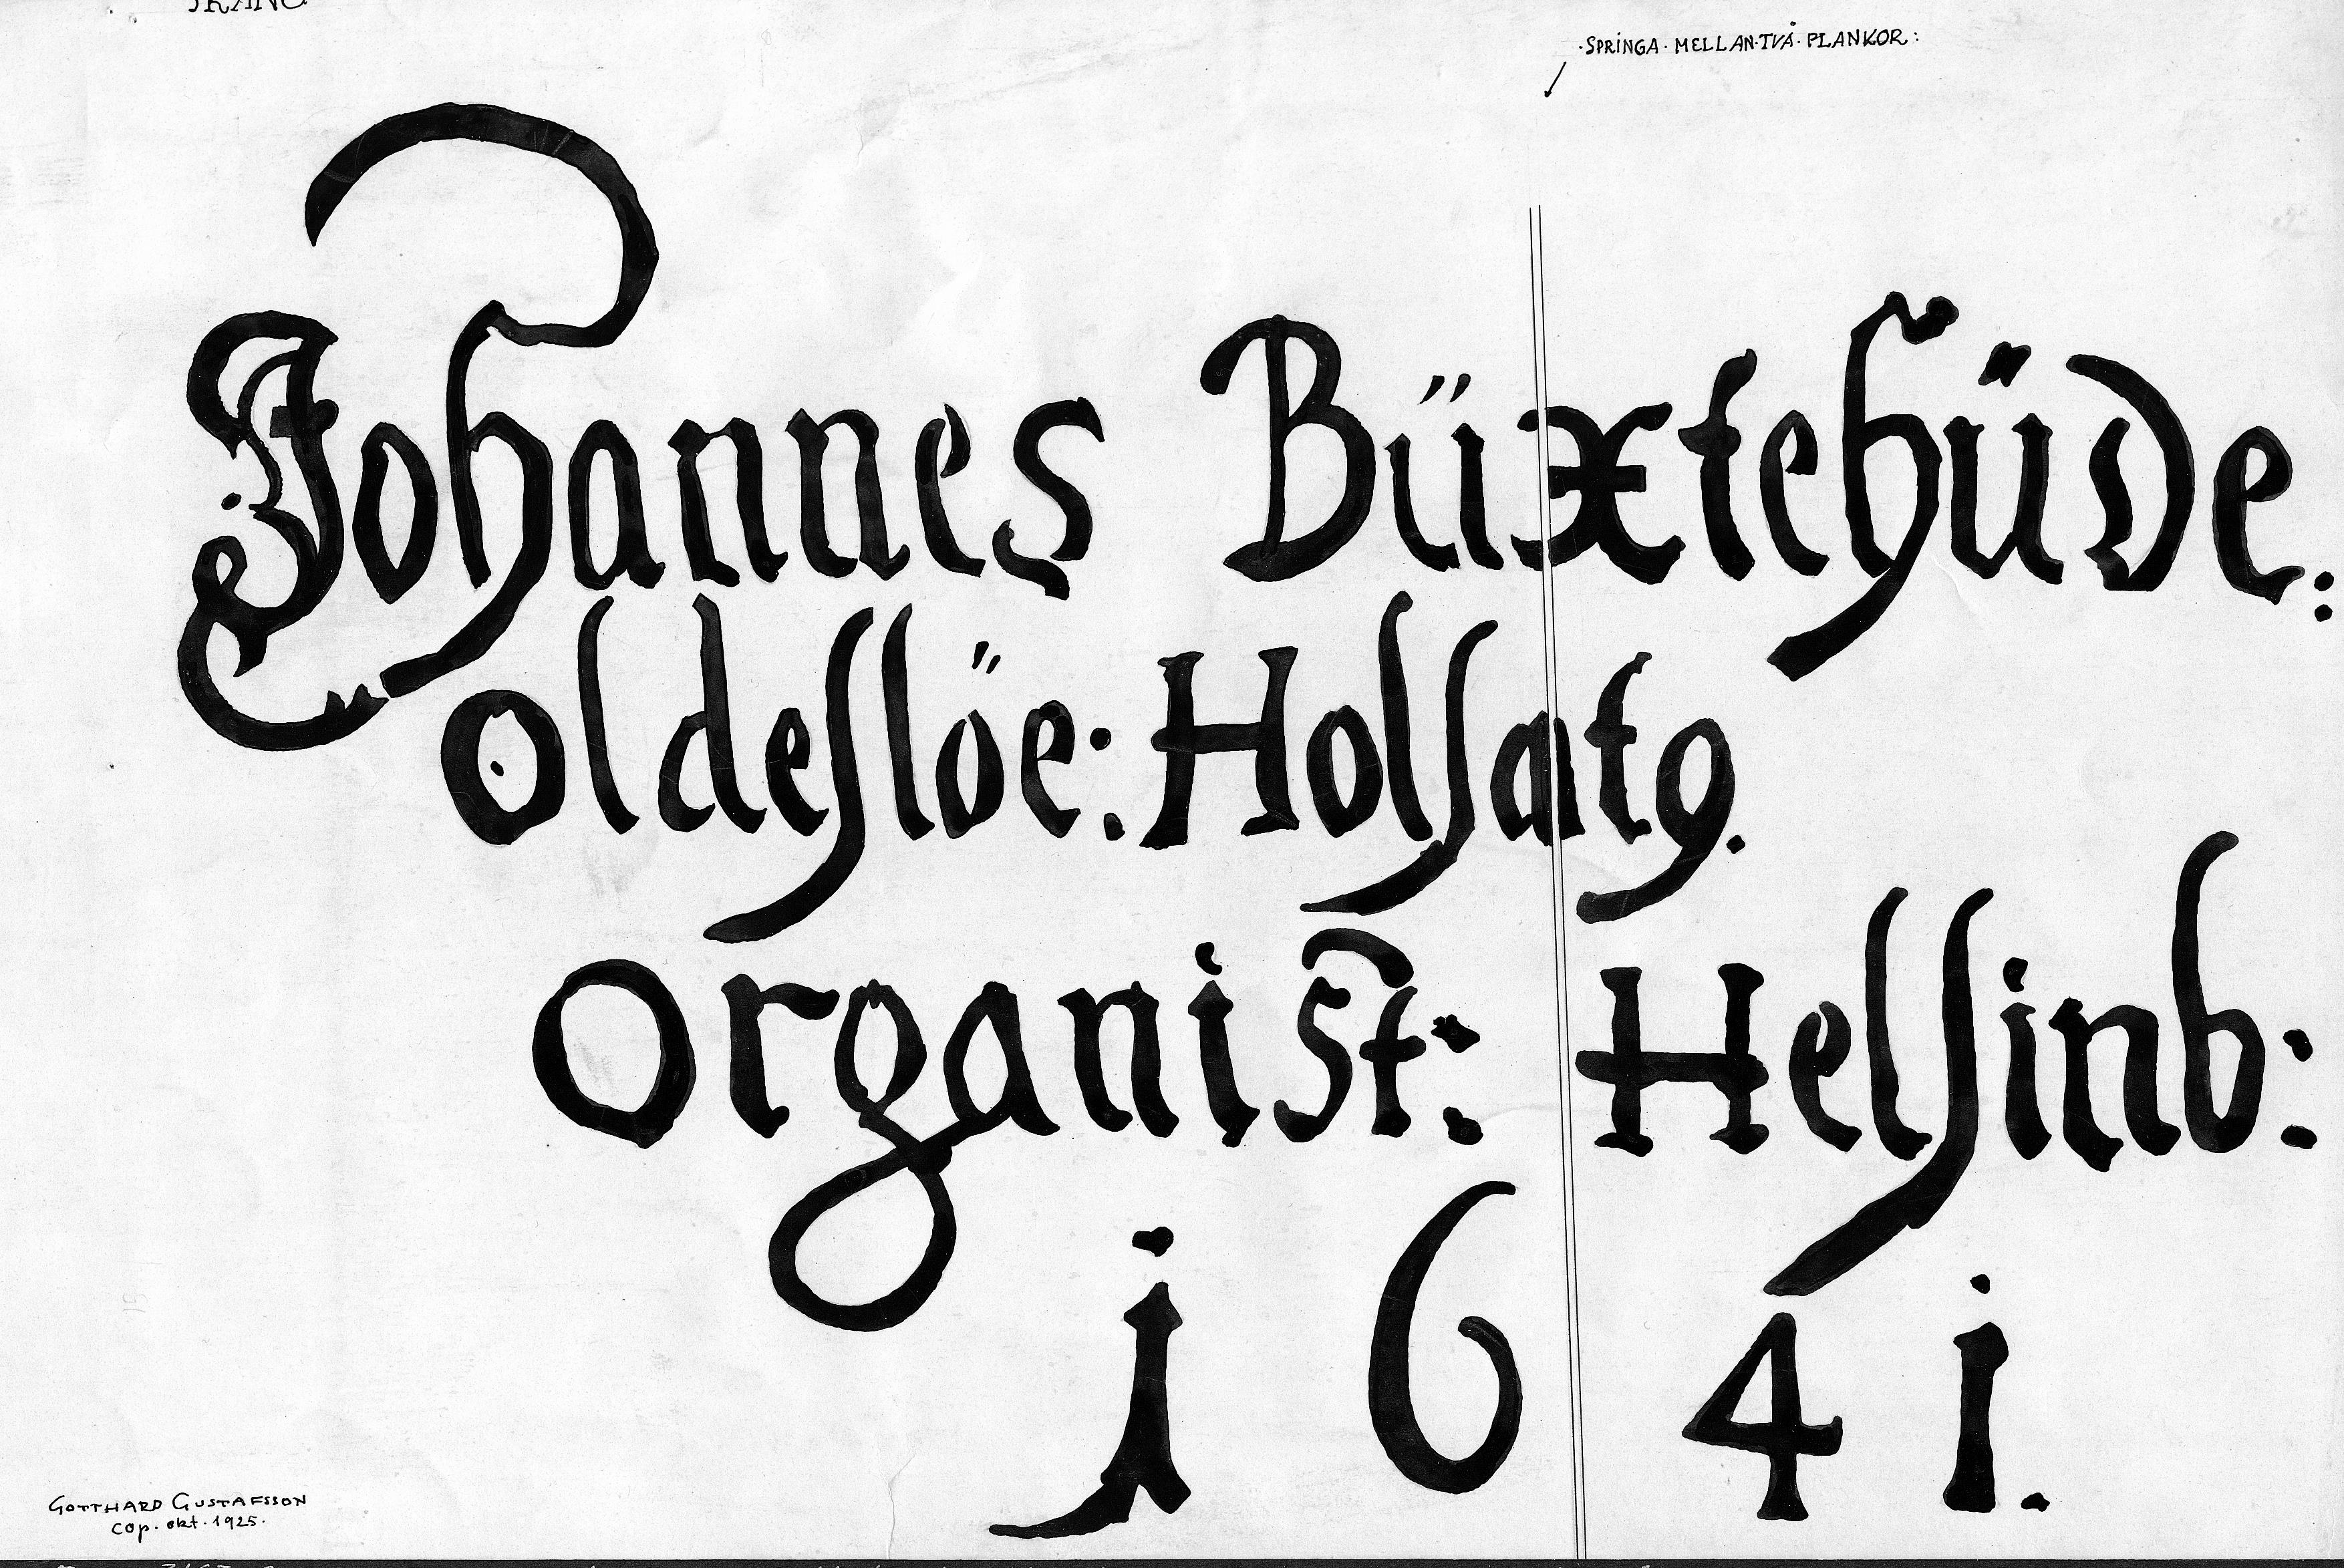 ·SPRINGA· MELLAN·TVÅ· PLANKOR:
Johannes Büxtehüde:
Oldesslöe: Holsatꝯ.
Organist: Helsinb:
1641.
GOTTHARD GUSTAFSSON
cop. okt. 1925.